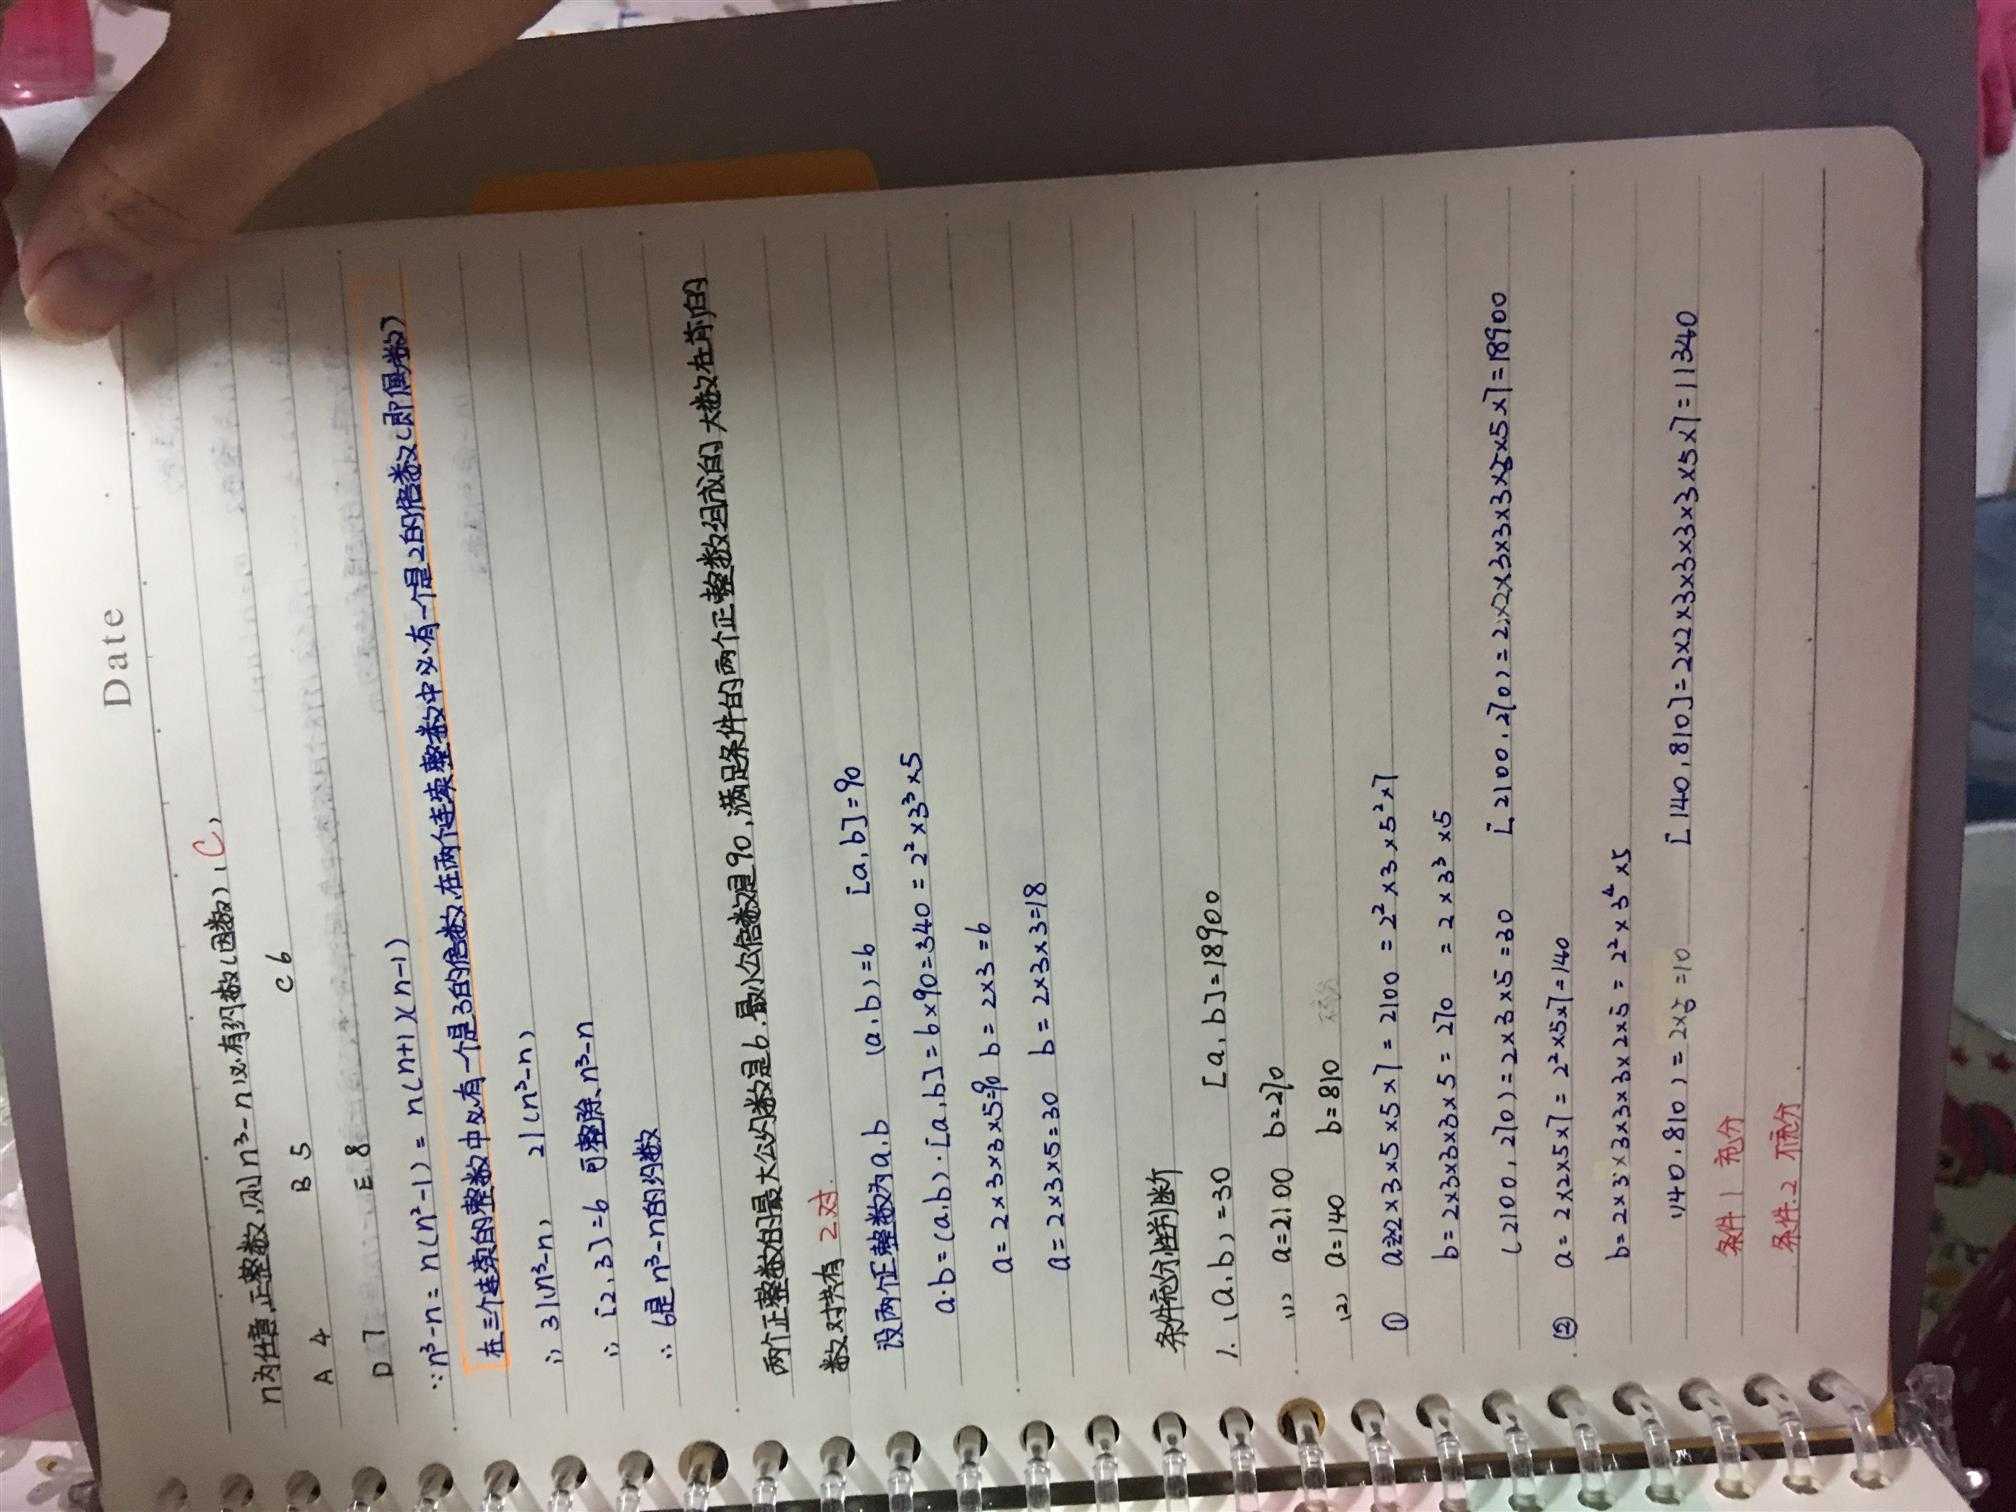 Date
n为任意正整数,则n³-n必有约数(因数)(C)
A 4 B 5 C 6
D 7 E 8
∵n³-n=n(n²-1)=n(n+1)(n-1)
在三个连续的整数中必有一个是3的倍数,在两个连续整数中必有一个是2的倍数(即偶数)
∴3|(n³-n) 2|(n³-n)
∴[2,3]=6 可整除n³-n
∴6是n³-n的约数
两个正整数的最大公约数是6.最小公倍数是90,满足条件的两个正整数组成的大数在前的
数对共有 2对.
设两个正整数为a.b (a.b)=6 [a.b]=90
a.b=(a.b)·[a.b]=6×90=340=2²×3³×5
a=2×3×3×5=90 b=2×3=6
a=2×3×5=30 b=2×3×3=18
条件充分性判断
1.(a.b)=30 [a,b]=18900
(1) a=2100 b=270
(2) a=140 b=810
① a=2×2×3×5×5×7=2100=2²×3×5²×7
b=2×3×3×3×5=270 =2×3³×5
(2100,270)=2×3×5=30 [2100,270)=2×2×3×3×3×5×5×7=18900
② a=2×2×5×7=2²×5×7=140
b=2×3×3×3×3×2×5=2²×3⁴×5
(140.810)=2×5=10 [140,810]=2×2×3×3×3×3×5×7=11340
条件1 充分
条件2 不充分